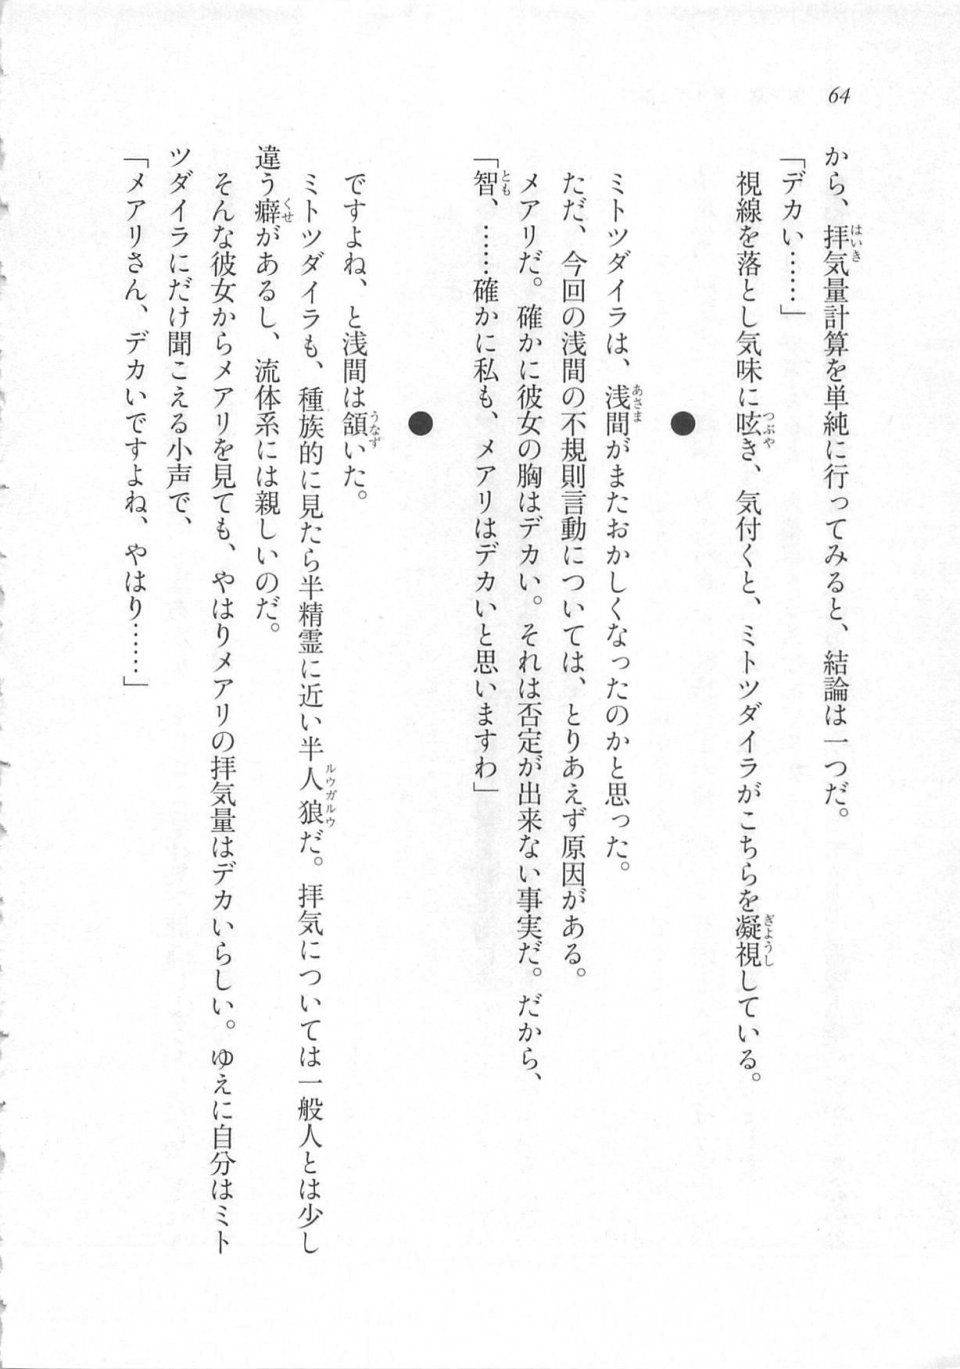 64
から、拝気量計算を単純に行ってみると、結論は一つだ。
「デカい……」
視線を落とし気味に呟き、気付くと、ミトツダイラがこちらを凝視している。
●
ミトツダイラは、浅間がまたおかしくなったのかと思った。
ただ、今回の浅間の不規則言動については、とりあえず原因がある。
メアリだ。確かに彼女の胸はデカい。それは否定が出来ない事実だ。だから、
「智、……確かに私も、メアリはデカいと思いますわ」
●
ですよね、と浅間は頷いた。
ミトツダイラも、種族的に見たら半精霊に近い半人狼だ。拝気については一般人とは少し
違う癖があるし、流体系には親しいのだ。
そんな彼女からメアリを見ても、やはりメアリの拝気量はデカいらしい。ゆえに自分はミト
ツダイラにだけ聞こえる小声で、
「メアリさん、デカいですよね、やはり……」